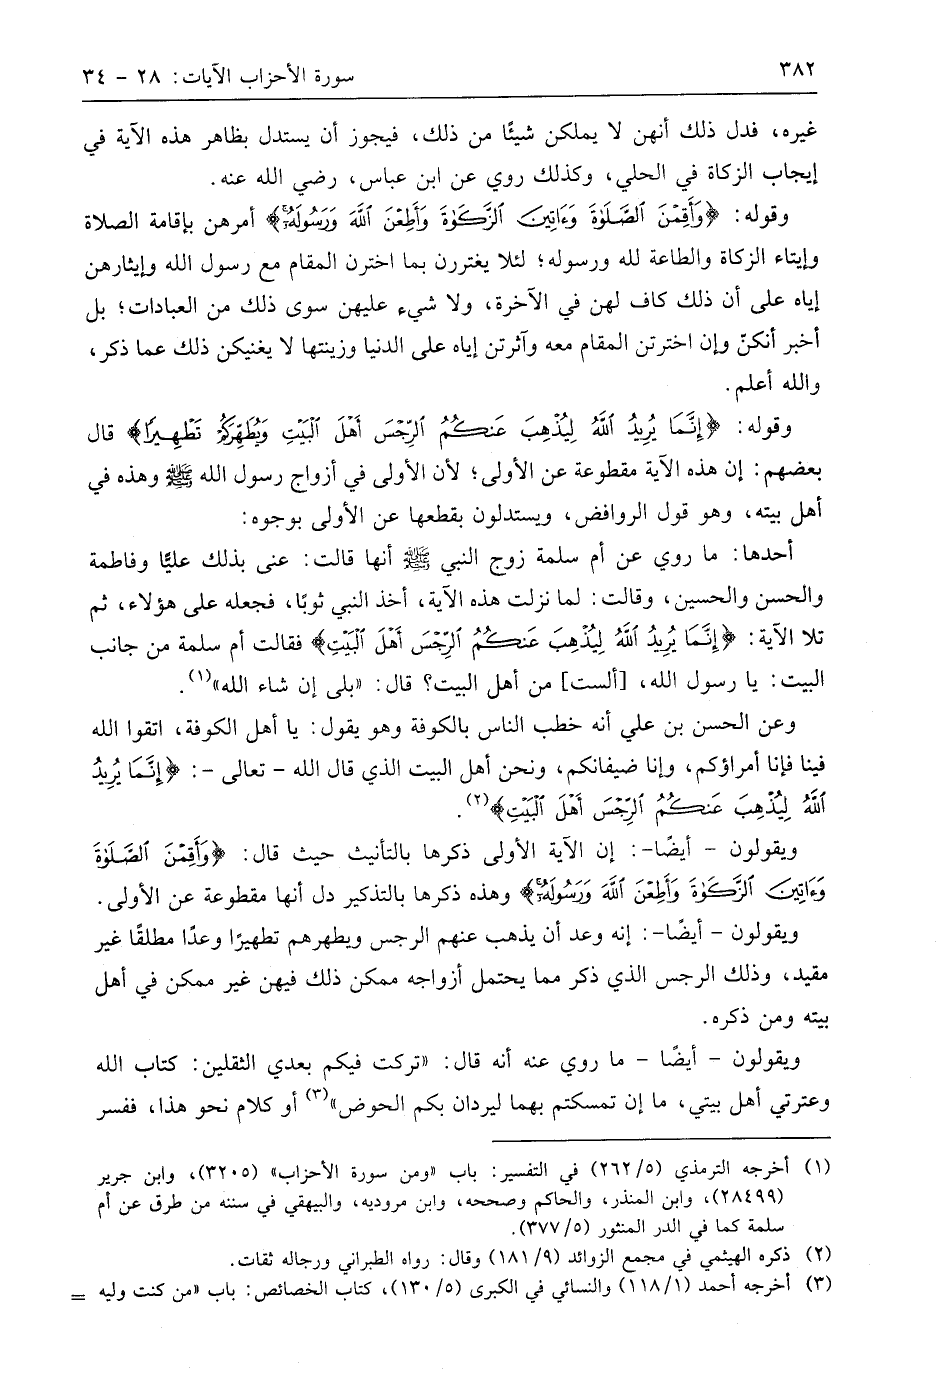 ٣٨٢
سورة الأحزاب الآيات: ٢٨ - ٣٤
غيره، فدل ذلك أنهن لا يملكن شيئًا من ذلك، فيجوز أن يستدل بظاهر هذه الآية في
إيجاب الزكاة في الحلي، وكذلك روي عن ابن عباس، رضي الله عنه.
وقوله: ﴿وَأَقِمْنَ ٱلصَّلَوٰةَ وَءَاتِينَ ٱلزَّكَوٰةَ وَأَطِعْنَ ٱللَّهَ وَرَسُولَهُۥٓ﴾ أمرهن بإقامة الصلاة
وإيتاء الزكاة والطاعة لله ورسوله؛ لئلا يغتررن بما اخترن المقام مع رسول الله وإيثارهن
إياه على أن ذلك كاف لهن في الآخرة، ولا شيء عليهن سوى ذلك من العبادات؛ بل
أخبر أنكنّ وإن اخترتن المقام معه وآثرتن إياه على الدنيا وزينتها لا يغنيكن ذلك عما ذكر،
والله أعلم.
وقوله: ﴿إِنَّمَا يُرِيدُ ٱللَّهُ لِيُذْهِبَ عَنكُمُ ٱلرِّجْسَ أَهْلَ ٱلْبَيْتِ وَيُطَهِّرَكُمْ تَطْهِيرًا﴾ قال
بعضهم: إن هذه الآية مقطوعة عن الأولى؛ لأن الأولى في أزواج رسول الله ﷺ وهذه في
أهل بيته، وهو قول الروافض، ويستدلون بقطعها عن الأولى بوجوه:
أحدها: ما روي عن أم سلمة زوج النبي ﷺ أنها قالت: عنى بذلك عليًّا وفاطمة
والحسن والحسين، وقالت: لما نزلت هذه الآية، أخذ النبي ثوبًا، فجعله على هؤلاء، ثم
تلا الآية: ﴿إِنَّمَا يُرِيدُ ٱللَّهُ لِيُذْهِبَ عَنكُمُ ٱلرِّجْسَ أَهْلَ ٱلْبَيْتِ﴾ فقالت أم سلمة من جانب
البيت: يا رسول الله، [ألست] من أهل البيت؟ قال: «بلى إن شاء الله»(١).
وعن الحسن بن علي أنه خطب الناس بالكوفة وهو يقول: يا أهل الكوفة، اتقوا الله
فينا فإنا أمراؤكم، وإنا ضيفانكم، ونحن أهل البيت الذي قال الله - تعالى -: ﴿إِنَّمَا يُرِيدُ
ٱللَّهُ لِيُذْهِبَ عَنكُمُ ٱلرِّجْسَ أَهْلَ ٱلْبَيْتِ﴾(٢).
ويقولون - أيضًا-: إن الآية الأولى ذكرها بالتأنيث حيث قال: ﴿وَأَقِمْنَ ٱلصَّلَوٰةَ
وَءَاتِينَ ٱلزَّكَوٰةَ وَأَطِعْنَ ٱللَّهَ وَرَسُولَهُۥٓ﴾ وهذه ذكرها بالتذكير دل أنها مقطوعة عن الأولى.
ويقولون - أيضًا-: إنه وعد أن يذهب عنهم الرجس ويطهرهم تطهيرًا وعدًا مطلقًا غير
مقيد، وذلك الرجس الذي ذكر مما يحتمل أزواجه ممكن ذلك فيهن غير ممكن في أهل
بيته ومن ذكره.
ويقولون - أيضًا - ما روي عنه أنه قال: «تركت فيكم بعدي الثقلين: كتاب الله
وعترتي أهل بيتي، ما إن تمسكتم بهما ليردان بكم الحوض»(٣) أو كلام نحو هذا، ففسر
(١) أخرجه الترمذي (٥/ ٢٦٢) في التفسير: باب «ومن سورة الأحزاب» (٣٢٠٥)، وابن جرير
(٢٨٤٩٩)، وابن المنذر، والحاكم وصححه، وابن مروديه، والبيهقي في سننه من طرق عن أم
سلمة كما في الدر المنثور (٥/ ٣٧٧).
(٢) ذكره الهيثمي في مجمع الزوائد (٩/ ١٨١) وقال: رواه الطبراني ورجاله ثقات.
(٣) أخرجه أحمد (١/ ١١٨) والنسائي في الكبرى (٥/ ١٣٠)، كتاب الخصائص: باب «من كنت وليه =